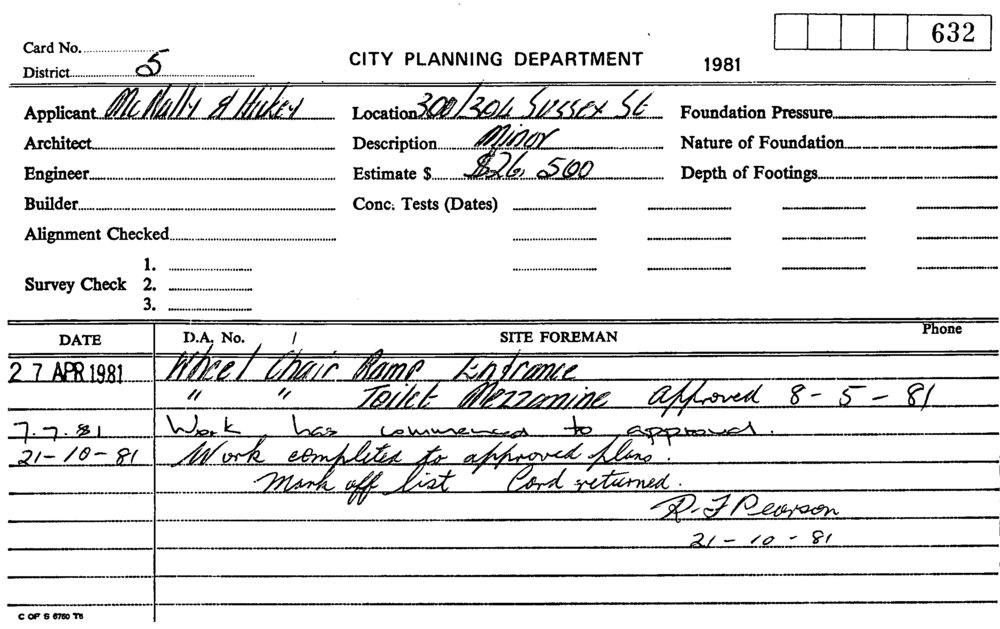 632
Card No.
District 5
CITY PLANNING DEPARTMENT 1981
Applicant McNally & Hickey Location 300/304 Sussex St Foundation Pressure
Architect Description Minor Nature of Foundation
Engineer Estimate $ $26,500 Depth of Footings
Builder Conc. Tests (Dates)
Alignment Checked
1.
Survey Check 2.
3.
DATE D.A. No. / SITE FOREMAN Phone
27 APR 1981 Wheel Chair Ramp Entrance
" " Toilet Mezzanine approved 8-5-81
7.7.81 Work has commenced to approval.
21-10-81 Work completed to approved plans.
Mark off list Card returned.
R.F Pearson
21-10-81
C OF S 6760 TS